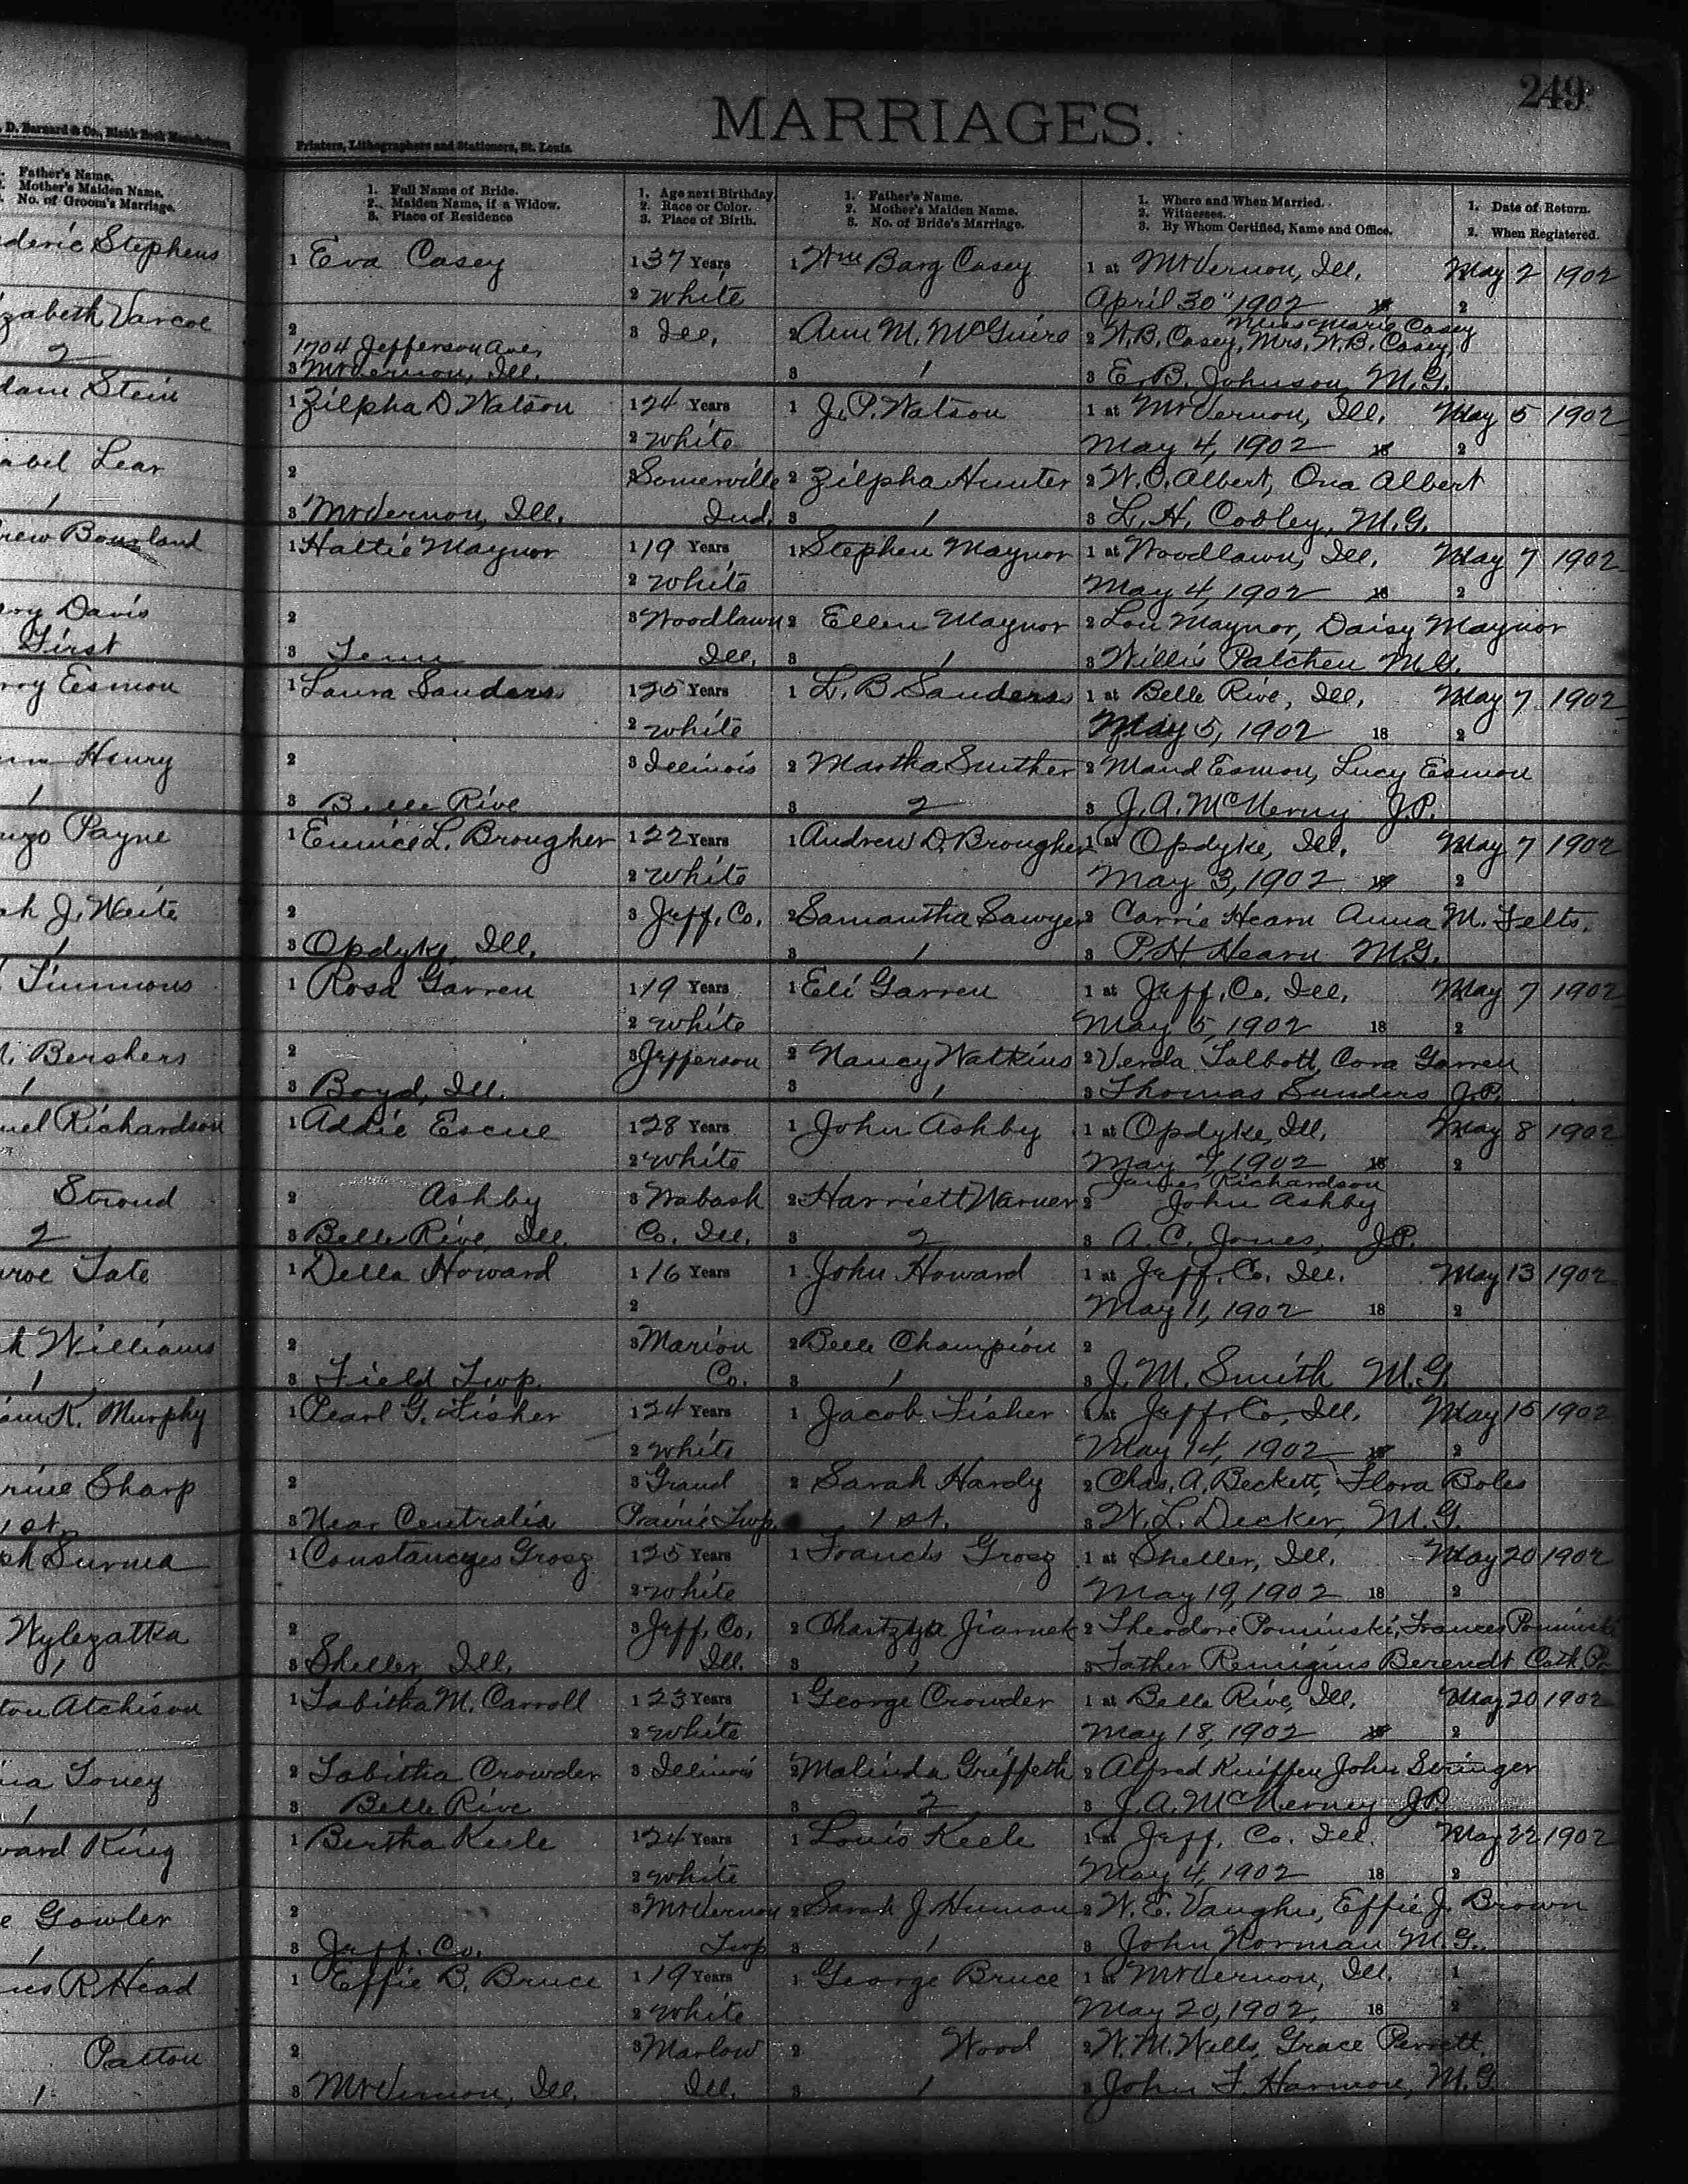 249
MARRIAGES.
D. Barnard & Co., Blank Book Manufacturers
Printers, Lithographers and Stationers, St. Louis.
Father's Name.
Mother's Maiden Name.
No. of Groom's Marriage.
1. Full Name of Bride.
2. Maiden Name, if a Widow.
3. Place of Residence
1. Age next Birthday
2. Race or Color.
3. Place of Birth.
1. Father's Name.
2. Mother's Maiden Name.
3. No. of Bride's Marriage.
1. Where and When Married.
2. Witnesses.
3. By Whom Certified, Name and Office.
1. Date of Return.
2. When Registered.
deric Stephens
1 Eva Casey 1 37 Years 1 Wm Barg Casey 1 at Mt Vernon, Ill. May 2 1902
2 White April 30" 1902 18 2
zabeth Varcoe 2 3 Ill. 2 Ann M. McGuire 2 W.B. Casey, Mrs. W.B. Casey, Miss Marie Casey
2 1704 Jefferson Ave,
3 Mt Vernon, Ill. 3 1 3 E. B. Johnson, M.G.
dam Stein 1 Zilpha D. Watson 1 24 Years 1 J. P. Watson 1 at Mt Vernon, Ill. May 5 1902
2 White May 4, 1902 18 2
abel Lear 2 3 Somerville 2 Zilpha Hunter 2 W. O. Albert, Ona Albert
1 3 Mt Vernon, Ill. Ind. 3 1 3 L. H. Cooley, M.G.
rew Bourland 1 Hattie Maynor 1 19 Years 1 Stephen Maynor 1 at Woodlawn, Ill. May 7 1902
2 White May 4, 1902 18 2
ry Davis 2 3 Woodlawn 2 Ellen Maynor 2 Lou Maynor, Daisy Maynor
First 3 Tenn Ill. 3 1 3 Willis Patchen M.G.
rry Esmon 1 Laura Sanders 1 25 Years 1 L. B. Sanders 1 at Belle Rive, Ill. May 7 1902
2 White May 5, 1902 18 2
Henry 2 3 Illinois 2 Martha Smither 2 Maud Esmon, Lucy Esmon
1 3 Belle Rive 3 2 3 J. A. McNerny J.P.
nzo Payne 1 Eunice L. Brougher 1 22 Years 1 Andrew D. Brougher 1 at Opdyke, Ill. May 7 1902
2 White May 3, 1902 18 2
ah J. Waite 2 3 Jeff. Co. 2 Samantha Sawyer 2 Carrie Hearn Anna M. Felts.
1 3 Opdyke, Ill. 3 1 3 P. H. Hearn M.G.
Timmons 1 Rosa Garren 1 19 Years 1 Eli Garren 1 at Jeff. Co. Ill. May 7 1902
2 White May 5, 1902 18 2
Bershers 2 3 Jefferson 2 Nancy Watkins 2 Verda Talbott, Cora Garren
1 3 Boyd, Ill. 3 1 3 Thomas Sanders J.P.
uel Richardson 1 Addie Escue 1 28 Years 1 John Ashby 1 at Opdyke, Ill. May 8 1902
2 White May 7, 1902 18 2
Stroud 2 Ashby 3 Wabash 2 Harriett Warner 2 James Richardson
John Ashby
2 3 Belle Rive, Ill. Co. Ill. 3 2 3 A. C. Jones, J.P.
roe Tate 1 Della Howard 1 16 Years 1 John Howard 1 at Jeff. Co. Ill. May 13 1902
2 May 11, 1902 18 2
h Williams 2 3 Marion 2 Belle Champion 2
1 3 Field Twp. Co. 3 1 3 J. M. Smith M.G.
am K. Murphy 1 Pearl G. Fisher 1 24 Years 1 Jacob Fisher 1 at Jeff. Co. Ill. May 15 1902
2 White May 14, 1902 18 2
rine Sharp 2 3 Grand 2 Sarah Hardy 2 Chas. A. Beckett, Flora Boles
1st. 3 Near Centralia Prairie Twp. 1st. 3 W. L. Decker, M.G.
ph Surma 1 Constancyes Grosz 1 25 Years 1 Francis Grosz 1 at Sheller, Ill. May 20 1902
2 White May 19, 1902 18 2
Wylezatka 2 3 Jeff. Co. 2 Jiarnek 2 Theodore Pominski, Frances Pominski
1 3 Sheller, Ill. Ill. 3 1 3 Father Remigius Berendt Cath. Pr
ton Atchison 1 Tabitha M. Carroll 1 23 Years 1 George Crowder 1 at Belle Rive, Ill. May 20 1902
2 White May 18, 1902 18 2
Toney 2 Tabitha Crowder 3 Illinois 2 Malinda Griffeth 2 Alfred Kniffen John Swinger
1 3 Belle Rive 3 2 3 J. A. McNerney J.P.
ward King 1 Bertha Keele 1 24 Years 1 Louis Keele 1 at Jeff. Co. Ill. May 22 1902
2 White May 4, 1902 18 2
e Gowler 2 3 Mt Vernon 2 Sarah J. Human 2 W. E. Vaughn, Effie J. Brown
1 3 Jeff. Co. Twp 3 1 3 John Norman M.G.
R. Head 1 Effie B. Bruce 1 19 Years 1 George Bruce 1 at Mt Vernon, Ill. 1
2 White May 20, 1902, 18 2
Patton 2 3 Marlow 2 Wood 2 W. M. Wells, Grace Perrett.
1 3 Mt Vernon, Ill. Ill. 3 1 3 John F. Harmon, M.G.